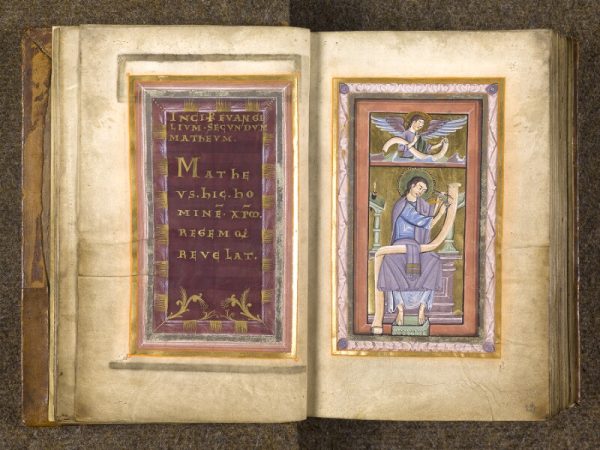 INCIP EVANGE
LIVM·SECVNDVM
MATHEVM.
MATHE
VS·HIC·HO
MINĒ·XPM̄
REGEMQ;
REVELAT.